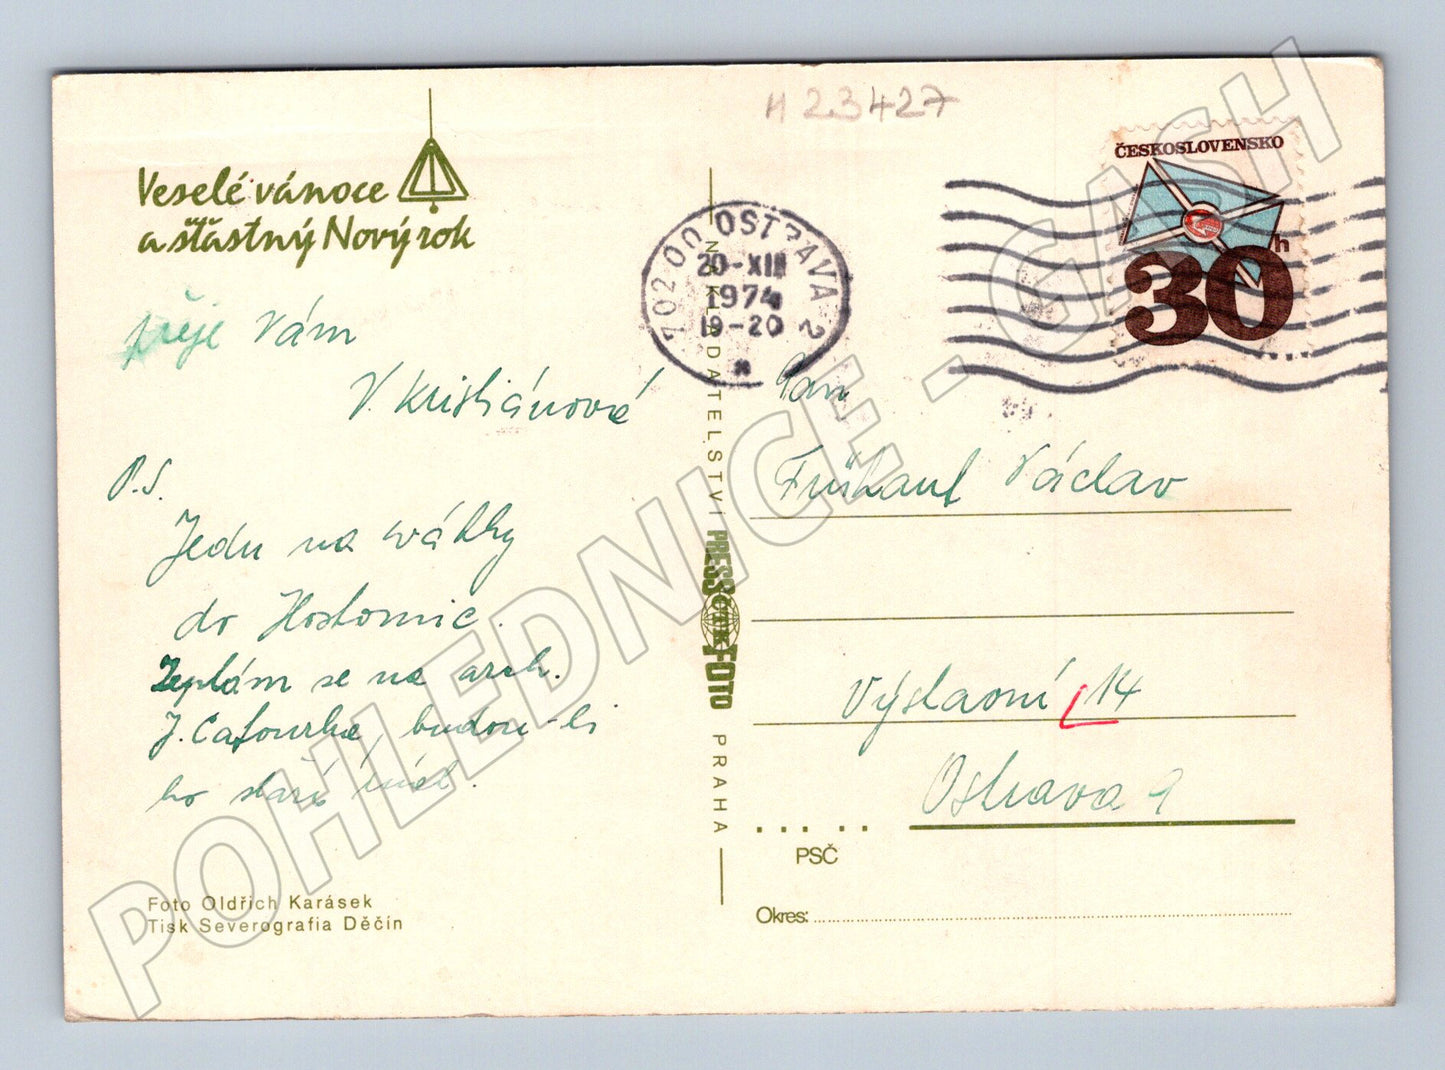 H 23427
ČESKOSLOVENSKO
30h
702 00 OSTRAVA 2
20-XII
1974
19-20
Veselé vánoce
a šťastný Nový rok
přeje Vám
V. Kristiánová
P.S.
Jedu na svátky
do Hostomic.
Zeptám se na arch.
J. Cafourka, budou-li
ho staří
Foto Oldřich Karásek
Tisk Severografia Děčín
NAKLADATELSTVÍ PRESSFOTO PRAHA
ČTK
Pan
Frühauf Václav
Výstavní 14
Ostrava
PSČ
Okres:
POHLEDNICE - GASH